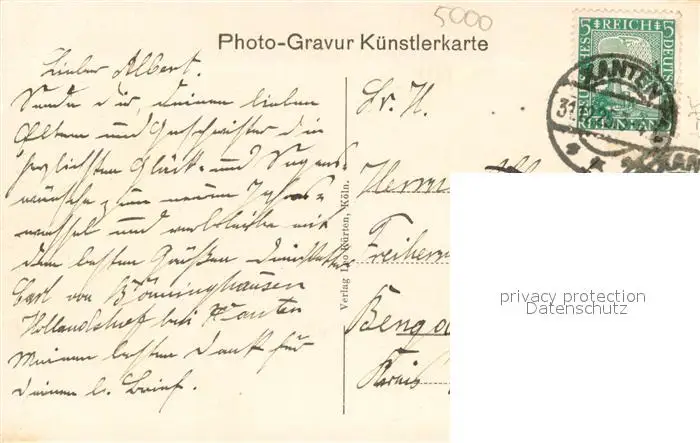 5000
Photo-Gravur Künstlerkarte
5 REICH 5
XANTEN
Lieber Albert.
Sende dir, deinen lieben
Eltern und Geschwister die
herzlichsten Glück- und Segens
wünsche zum neuen Jahres-
wechsel und verbleibe mit
den besten Grüßen dein
Carl von Bönninghausen
bei Xanten
Meinen besten Dank für
deinen l. Brief.
Verlag Leo Kürten, Köln.
Sr. H.
Herrn
Freiherrn
Kreis
privacy protection
Datenschutz